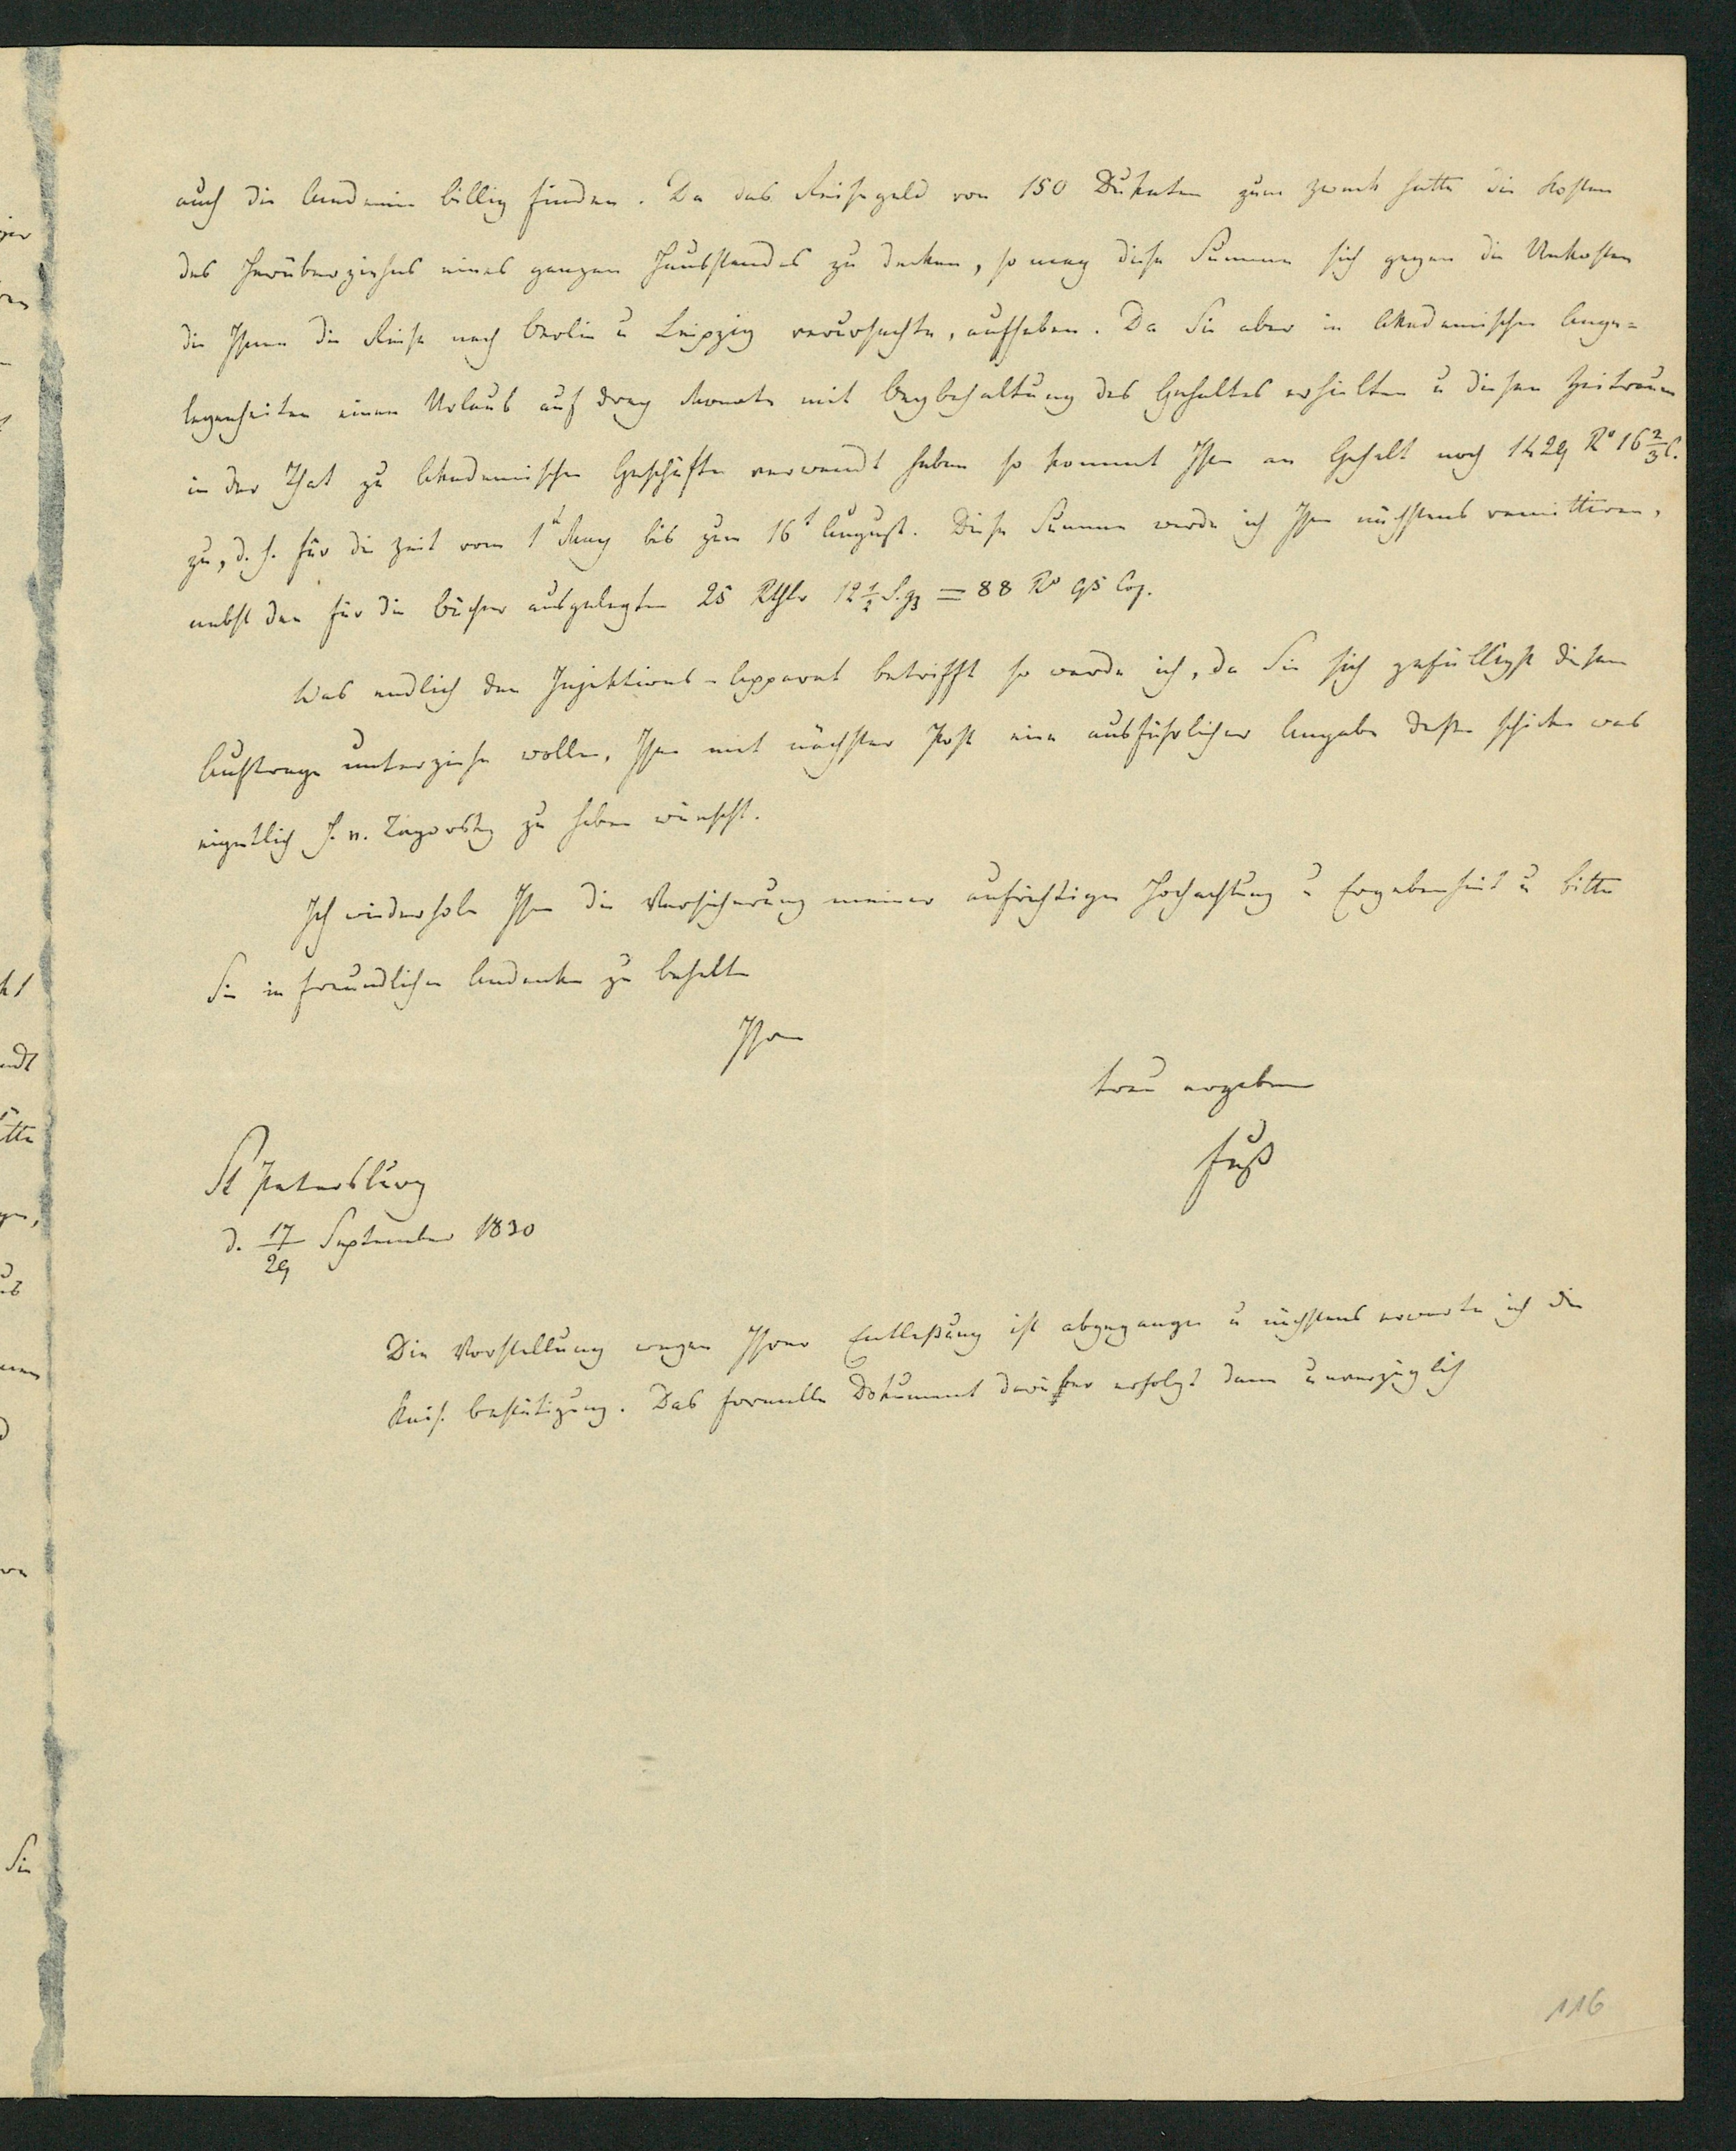 auch die Academie billig finden. Da das Reisegeld von 150 Dukaten zum Zweck hatte die Kosten
des Herüberziehens eines ganzen Hausstandes zu decken, so mag diese Summe sich gegen die Unkosten
die Ihnen die Reise nach Berlin u Leipzig verursachte, aufheben. Da Sie aber in Akademischen Ange-
legenheiten einen Urlaub auf drey Monate mit Beybehaltung des Gehaltes erhielten u diesen Zeitraum
in der That zu Akademischen Geschäften verwandt haben so kommt Ihnen an Gehalt noch 1429 Ro 16 2/3 C.
zu, d. h. für die Zeit vom 1t May bis zum 16t August. Diese Summe werde ich Ihnen nächstens remittiren,
nebst den für die Bücher ausgelegten 25 Rthlr 12 1/2 S.gr = 88 Ro 95 Cop.
Was endlich den Injektions-Apparat betrifft so werde ich, da Sie sich gefälligst diesem
Auftrage unterziehen wollen, Ihnen mit nächster Post eine ausführlicher Angabe dessen schicken was
eigentlich H. v. Zagorsky zu haben wünscht.
Ich wiederhole Ihnen die Versicherung meiner aufrichtigen Hochachtung u Ergebenheit u bitte
Sie in freundlichem Andenken zu behalten
Ihren
treu ergebenen
Fuß
St Petersburg
d. 17/29 September 1830
Die Vorstellung wegen Ihrer Entlaßung ist abgegangen u nächstens erwarte ich die
Kais. Bestätigung. Das formelle Dokument darüber erfolgt dann unverzüglich
116